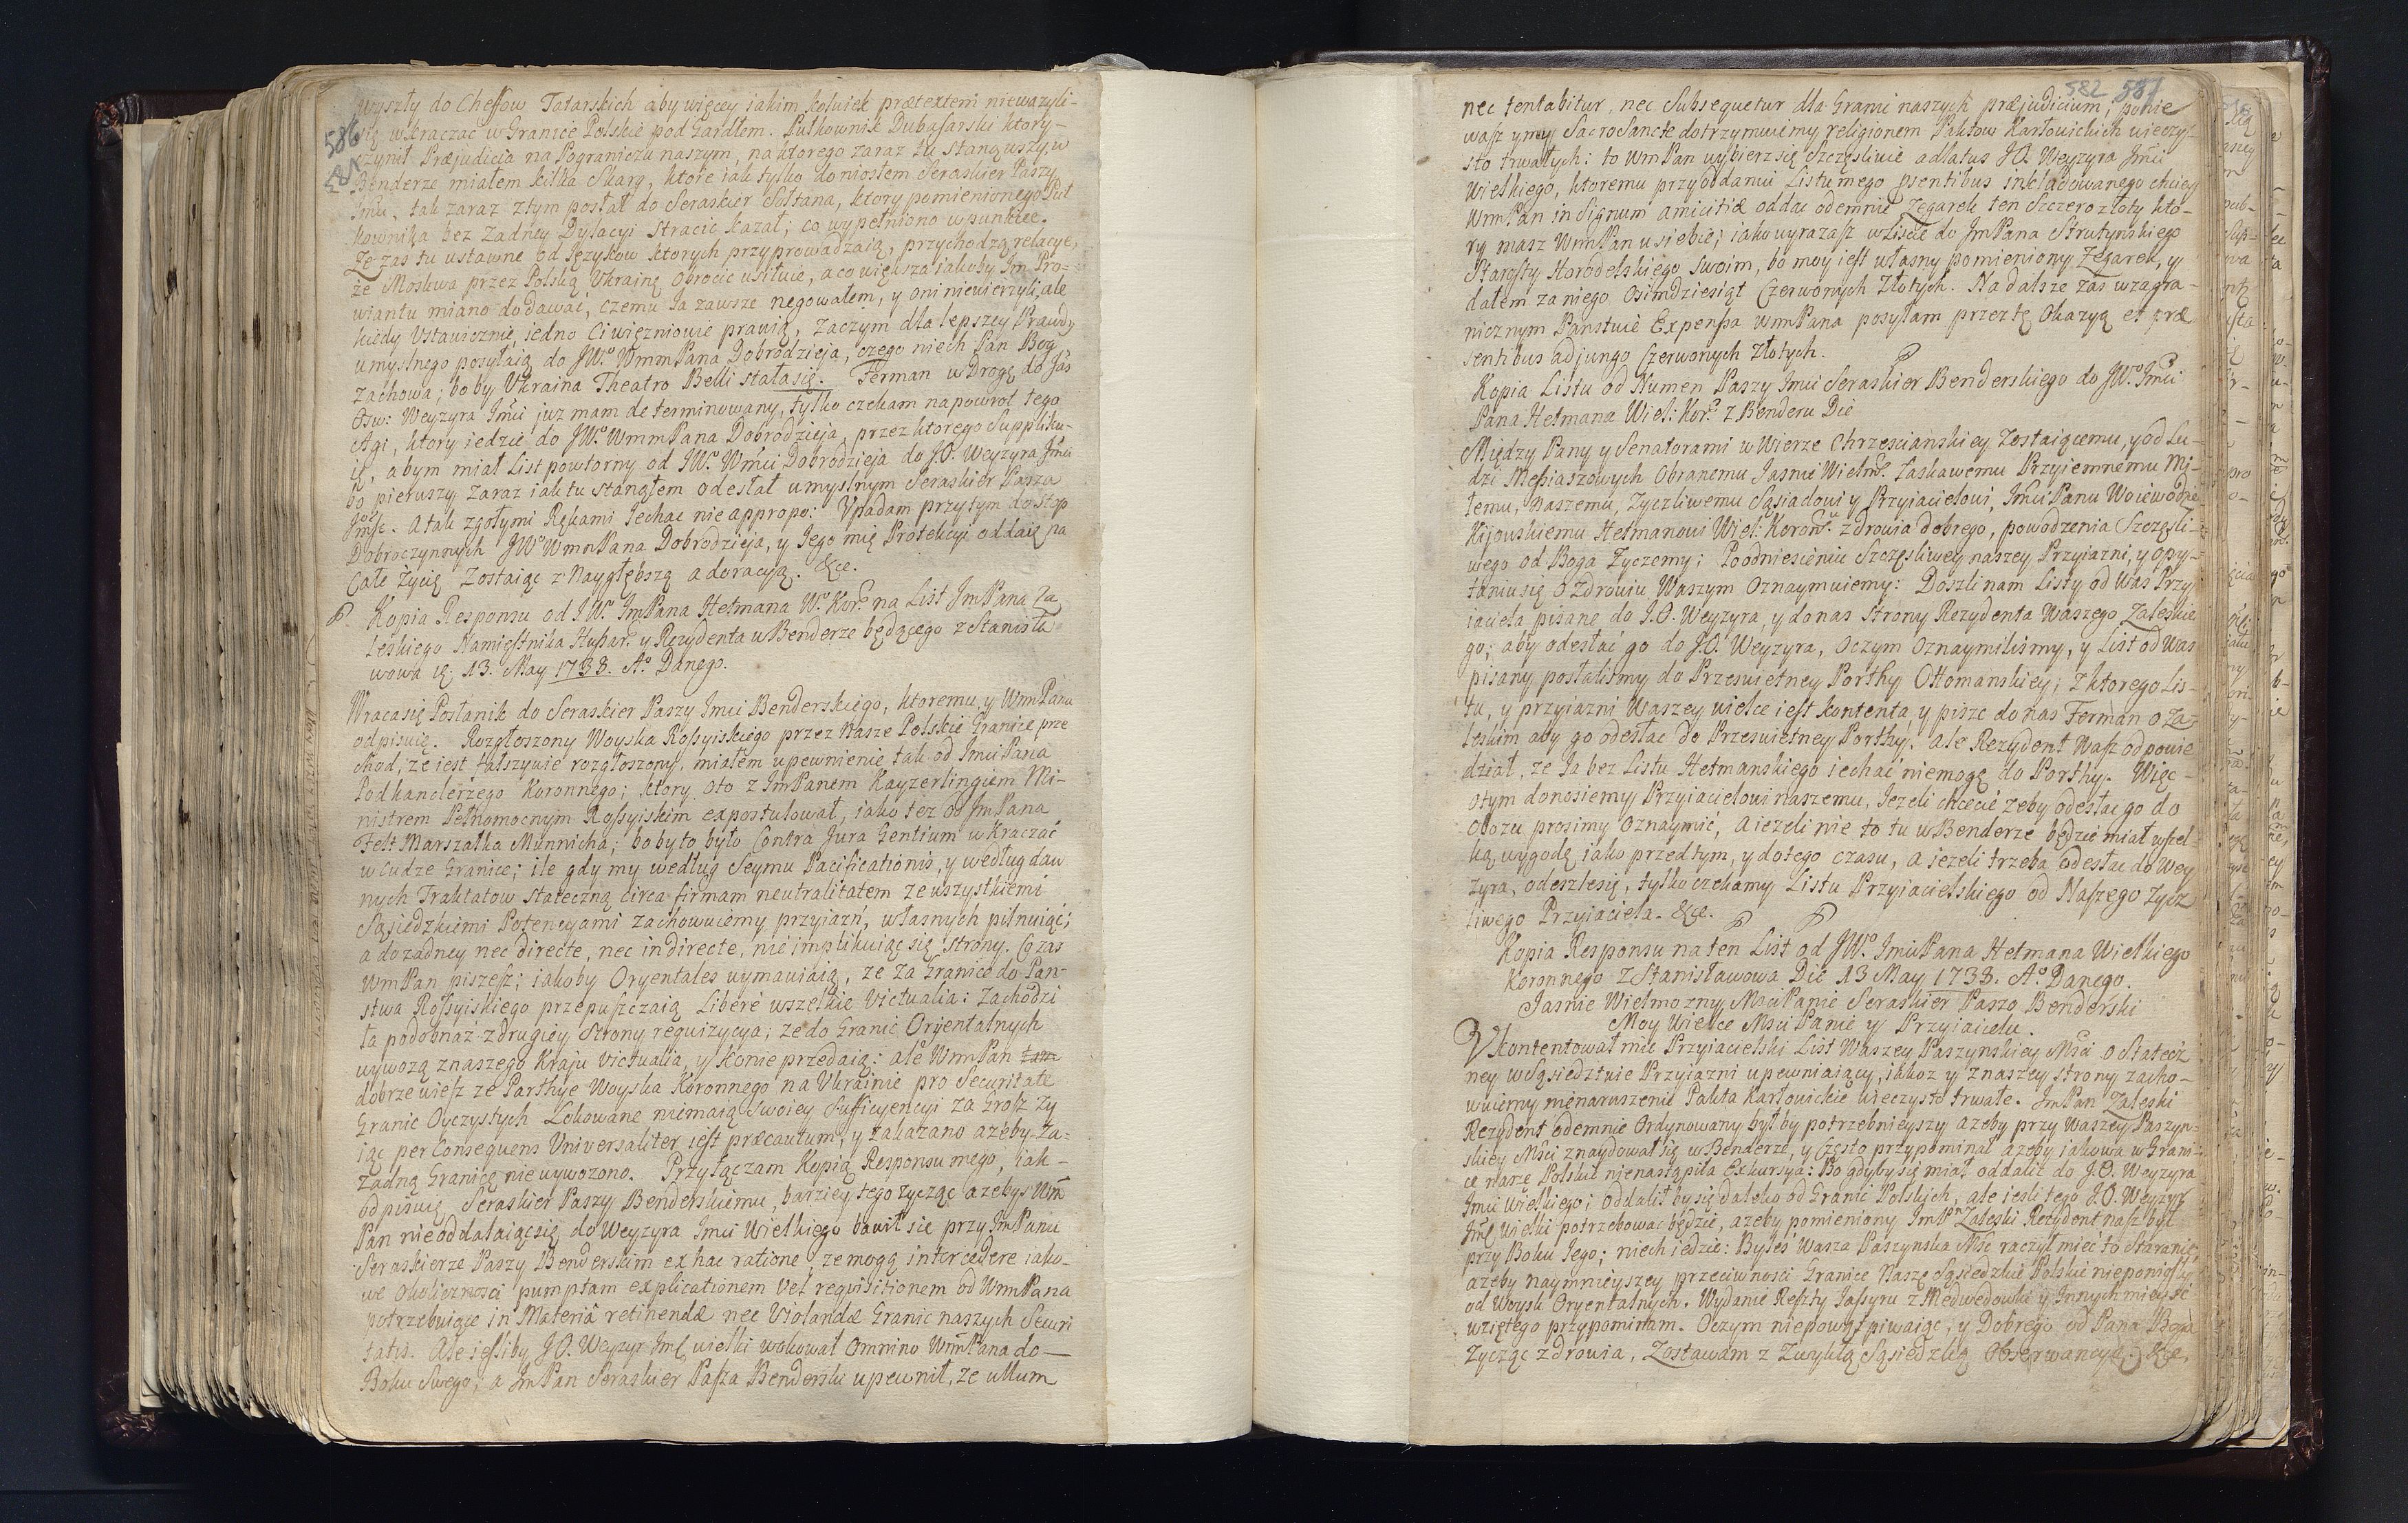 586
581
wyszły do Cheffow Tatarskich aby więcey iakim kolwiek prætextem nieważyli-
się wkraczać w Granice Polskie pod Gardłem. Pułkownik Dubasarski ktory-
czynił Præjudicia na Pograniczu naszym, na ktorego zaraz tu stanąwszy, w
Benderze miałem kilka Skarg, ktore iak tylko doniosłem Seraskier Paszy
Jmći, tak zaraz ztym posłał do Seraskier Sołtana, ktory pomienionego Puł
kownika bez żadney Dylacyi stracic kazał; co wypełniono w punkcie.
Ze zas tu ustawne od Językow ktorych przyprowadzaią, przychodzą relacye,
że Moskwa przez Polską Vkrainę obrocic usiłuie, a co większa iakoby Im Pro-
wiantu miano dodawać, czemu Ia zawsze negowałem, y oni niewierzyli, ale
kiedy Vstawicznie iedno Ci więzniowie prawią, zaczym dla lepszey Prawdy
umyslnego posyłaią do JWo WmmPana Dobrodzieja, czego niech Pan Bog
zachowa; bo by Vkraina Theatro Belli stała się. Ferman w Drogę do Jaś
Osw: Weyzyra Jmći juz mam determinowany, tylko czekam na powrot tego
Agi, ktory iedzie do JWo WmmPana Dobrodzieja, przez ktorego Suppliku-
ię, abym miał List powtorny od JWo Wmći Dobrodzieja do J.O. Weyzyra Jmći
bo pierwszy zaraz iak tu stanąłem odesłał umyslnym Seraskier Pasza
Jmść. A tak zgołymi Rękami Iechac nie appropo: Vpadam przytym do stop
Dobroczynnych JWo WmnPana Dobrodzieja, y Jego mię Protekcyi oddaię na
Całe życie Zostaiąc z Naygłębszą adoracyą. &ce.
Kopia Responsu od JWo JmPana Hetmana Wo Kor: na List JmPana Za
leskiego Namięstnika Husar: y Rezydenta w Benderze będącego z Stanisła
wowa d: 13. May 1738. Ao Danego.
Wraca się Posłanik do Seraskier Paszy Jmći Benderskiego, ktoremu, y WmPanu
odpisuię. Rozgłoszony Woyska Rossyiskiego przez Nasze Polskie Granice prze
chod, że iest fałszywie rozgłoszony, miałem upewnienie tak od Jmći Pana
Podkanclerzego Koronnego; ktory oto z JmPanem Kayzerlingiem Mi-
nistrem Pełnomocnym Rossyiskim expostulował, iako tez od JmPana
Felt Marszałka Münnicha; bo by to było Contra Jura Gentium wkraczać
w Cudze Granice; ile gdy my według Seymu Pacificationis, y według daw
nych Traktatow stateczną circa firmam neutralitatem ze wszystkiemi
Sąsiedzkiemi Potencyami zachowuiemy przyjazń, własnych pilnuiąc;
a do żadney nec directe, nec indirecte, nie implikuiąc się strony. Co zas
WmPan piszesz; iakoby Oryentales wymawiaią, ze za granice do Pan-
stwa Rossyiskiego przepuszczaią Liberè wszelkie Victualia: Zachodzi
ta podobnaż z drugiey strony requizycya; ze do Granic Oryentalnych
wywozą z naszego Kraju Victualia, y Konie przedaią: ale WmPan
dobrze wiesz ze Parthye Woyska Koronnego na Vkrainie pro Securitate
Granic Oyczystych Lokowane niemaią swoiey Sufficyencyi za Grosz ży
iąc per Consequens Universaliter iest præcautum, y zakazano ażeby za-
żadną Granicę nie wywozono. Przyłączam Kopią Responsu mego, iak-
odpisuię Seraskier Paszy Benderskiemu, barziey tego życząc ażebys Wm
Pan nieoddalaiąc się do Weyzyra Jmći Wielkiego bawił się przy JmPanu
Seraskierze Paszy Benderskim ex hac ratione, ze mogą intercedere iako-
we okoliczności pumptam explicationem vel requisitionem od WmPana
potrzebuiące in Materiâ retinendæ nec Violandæ Granic naszych Securi
tatis. Ale iesliby J.O. Weyzyr Jmć wielki wokował omnino WmPana do-
Boku Swego, a JmPan Seraskier Pasza Benderski upewnił, ze ullum
582 587
nec tentabitur, nec Subsequetur dla Granic naszych præjudicium; ponie
waz y my SacroSancte dotrzymuiemy religionem Paktow Karłowickich wieczy-
sto trwałych: to WmPan wybierz się szczęsliwie adlatus J.O. Weyzyra Jmći
Wielkiego, ktoremu przy oddaniu Listu mego psentibus inkładowanego chciey
WmPan in Signum amicitiæ oddac odemnie Zegarek ten Szczerozłoty kto-
ry masz WmPan u siebie; iako wyrażasz w Liscie do JmPana Strutynskiego
Starosty Horodelskiego swoim, bo moy iest własny pomieniony Zegarek, y
dałem za niego Osimdziesiąt Czerwonych Złotych. Na dalsze zas w zagra-
nicznym Panstwie Expensa WmPana posyłam przez tę Okazyą et præ
sentibus adjungo Czerwonych Złotych.
Kopia Listu od Numen Paszy Jmći Seraskier Benderskiego do JWo Jmći
Pana Hetmana Wiel: Kor: z Benderu Die
Między Pany y Senatorami w Wierze Chrzescianskiey Zostaiącemu, y od Lu-
dzi Messiaszowych Obranemu Jasnie Wielmo. Łaskawemu Przyiemnemu Mi-
łemu, naszemu, Zyczliwemu Sąsiadowi y Przyiacielowi, Jmći Panu Woiewodzie
Kijowskiemu Hetmanowi Wiel: Koron: zdrowia dobrego, powodzenia Szczęsli-
wego od Boga Zyczemy; Po odniesieniu Szczęsliwey naszey Przyiazni, y opy-
taniu się o Zdrowiu Waszym Oznaymuiemy: Doszli nam Listy od Was Przy
iaciela pisane do J.O. Weyzyra, y do nas strony Rezydenta Waszego Zaleskie
go; aby odesłać go do J.O. Weyzyra, Oczym Oznaymiliśmy, y List od Was
pisany posłaliśmy do Przeswietney Porthy Ottomanskiey; z ktorego Lis-
tu, y przyiazni Waszey wielce iest kontenta, y pisze do nas Ferman o Za-
leskim aby go odesłac do Przeswietney Porthy. Ale Rezydent Wasz odpowie
dział, ze Ja bez Listu Hetmanskiego iechać niemogę do Porthy. Więc-
o tym donosiemy Przyiacielowi naszemu, Jezeli chcecie zeby odesłac go do
Obozu prosimy Oznaymić, A iezeli nie to tu w Benderze będzie miał wszel-
ką wygodę iako przedtym, y do tego czasu, a jezeli trzeba odesłac do Wey
zyra, odeszle się, tylko czekamy Listu Przyiacielskiego od Naszego życz
liwego Przyjaciela. &ce.
Kopia Responsu na ten List od JWo JmćiPana Hetmana Wielkiego
Koronnego z Stanisławowa Die 13 May 1738. Ao Danego.
Jasnie Wielmozny Msci Panie Seraskier Paszo Benderski
Moy Wielce Msci Panie y Przyiacielu.
Vkontentował mie Przyiacielski List Waszey Paszynskiey Msći o Statecz
ney w Sąsiedztwie Przyiazni upewniaiący, iakoz y z naszey strony zacho-
wuiemy nienaruszenie Pakta Karłowickie wieczysto trwałe. JmPan Zaleski
Rezydent odemnie Ordynowany był by potrzebnieyszy azeby przy Waszey Paszyn-
skiey Msći znaydował się w Benderze, y często przypominał azeby iakowa w Grani-
ce nasze Polskie nienastąpiła Exkursya: Bo gdyby się miał oddalic do J.O. Weyzyra
Jmći Wielkiego; oddalił by się daleko od Granic Polskich, ale iesli tego J.O. Weyzyr
Jmć Wielki potrzebowac będzie, azeby pomieniony JmPn Zaleski Rezydent nasz był
przy Boku Jego; niech iedzie: Byłes Wasza Paszynska Mść raczył miec to Staranie,
azeby naymnieyszey przeciwnosci Granice Nasze Sąsiedzkie Polskie nieponiosły
od Woysk Oryentalnych. Wydanie Reszty Jassyru z Medwedowki y Innych mieysc
wziętego przypominam. Oczym niepowątpiwaiąc, y Dobrego od Pana Boga
Zycząc zdrowia, Zostawam z Zwykłą Sąsiedzką Obserwancyą. &ce.